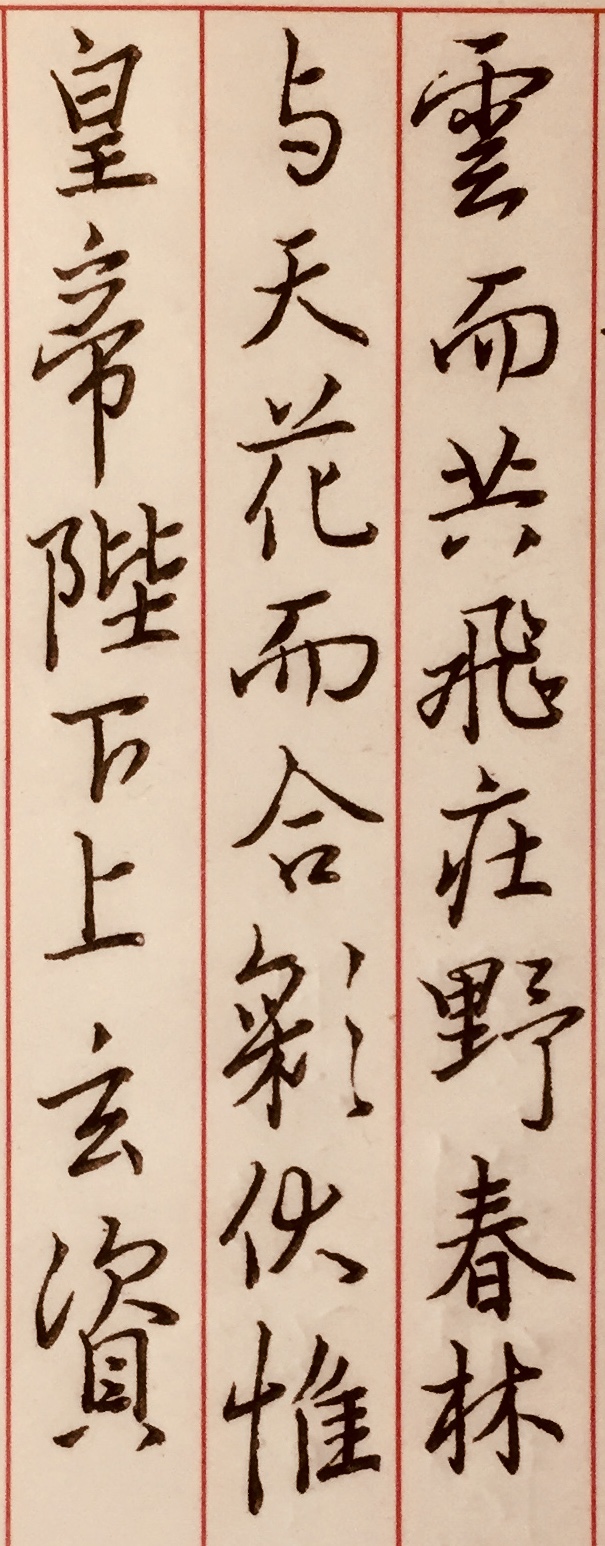 雲而共飛庄野春林
与天花而合彩伏惟
皇帝陛下上玄資